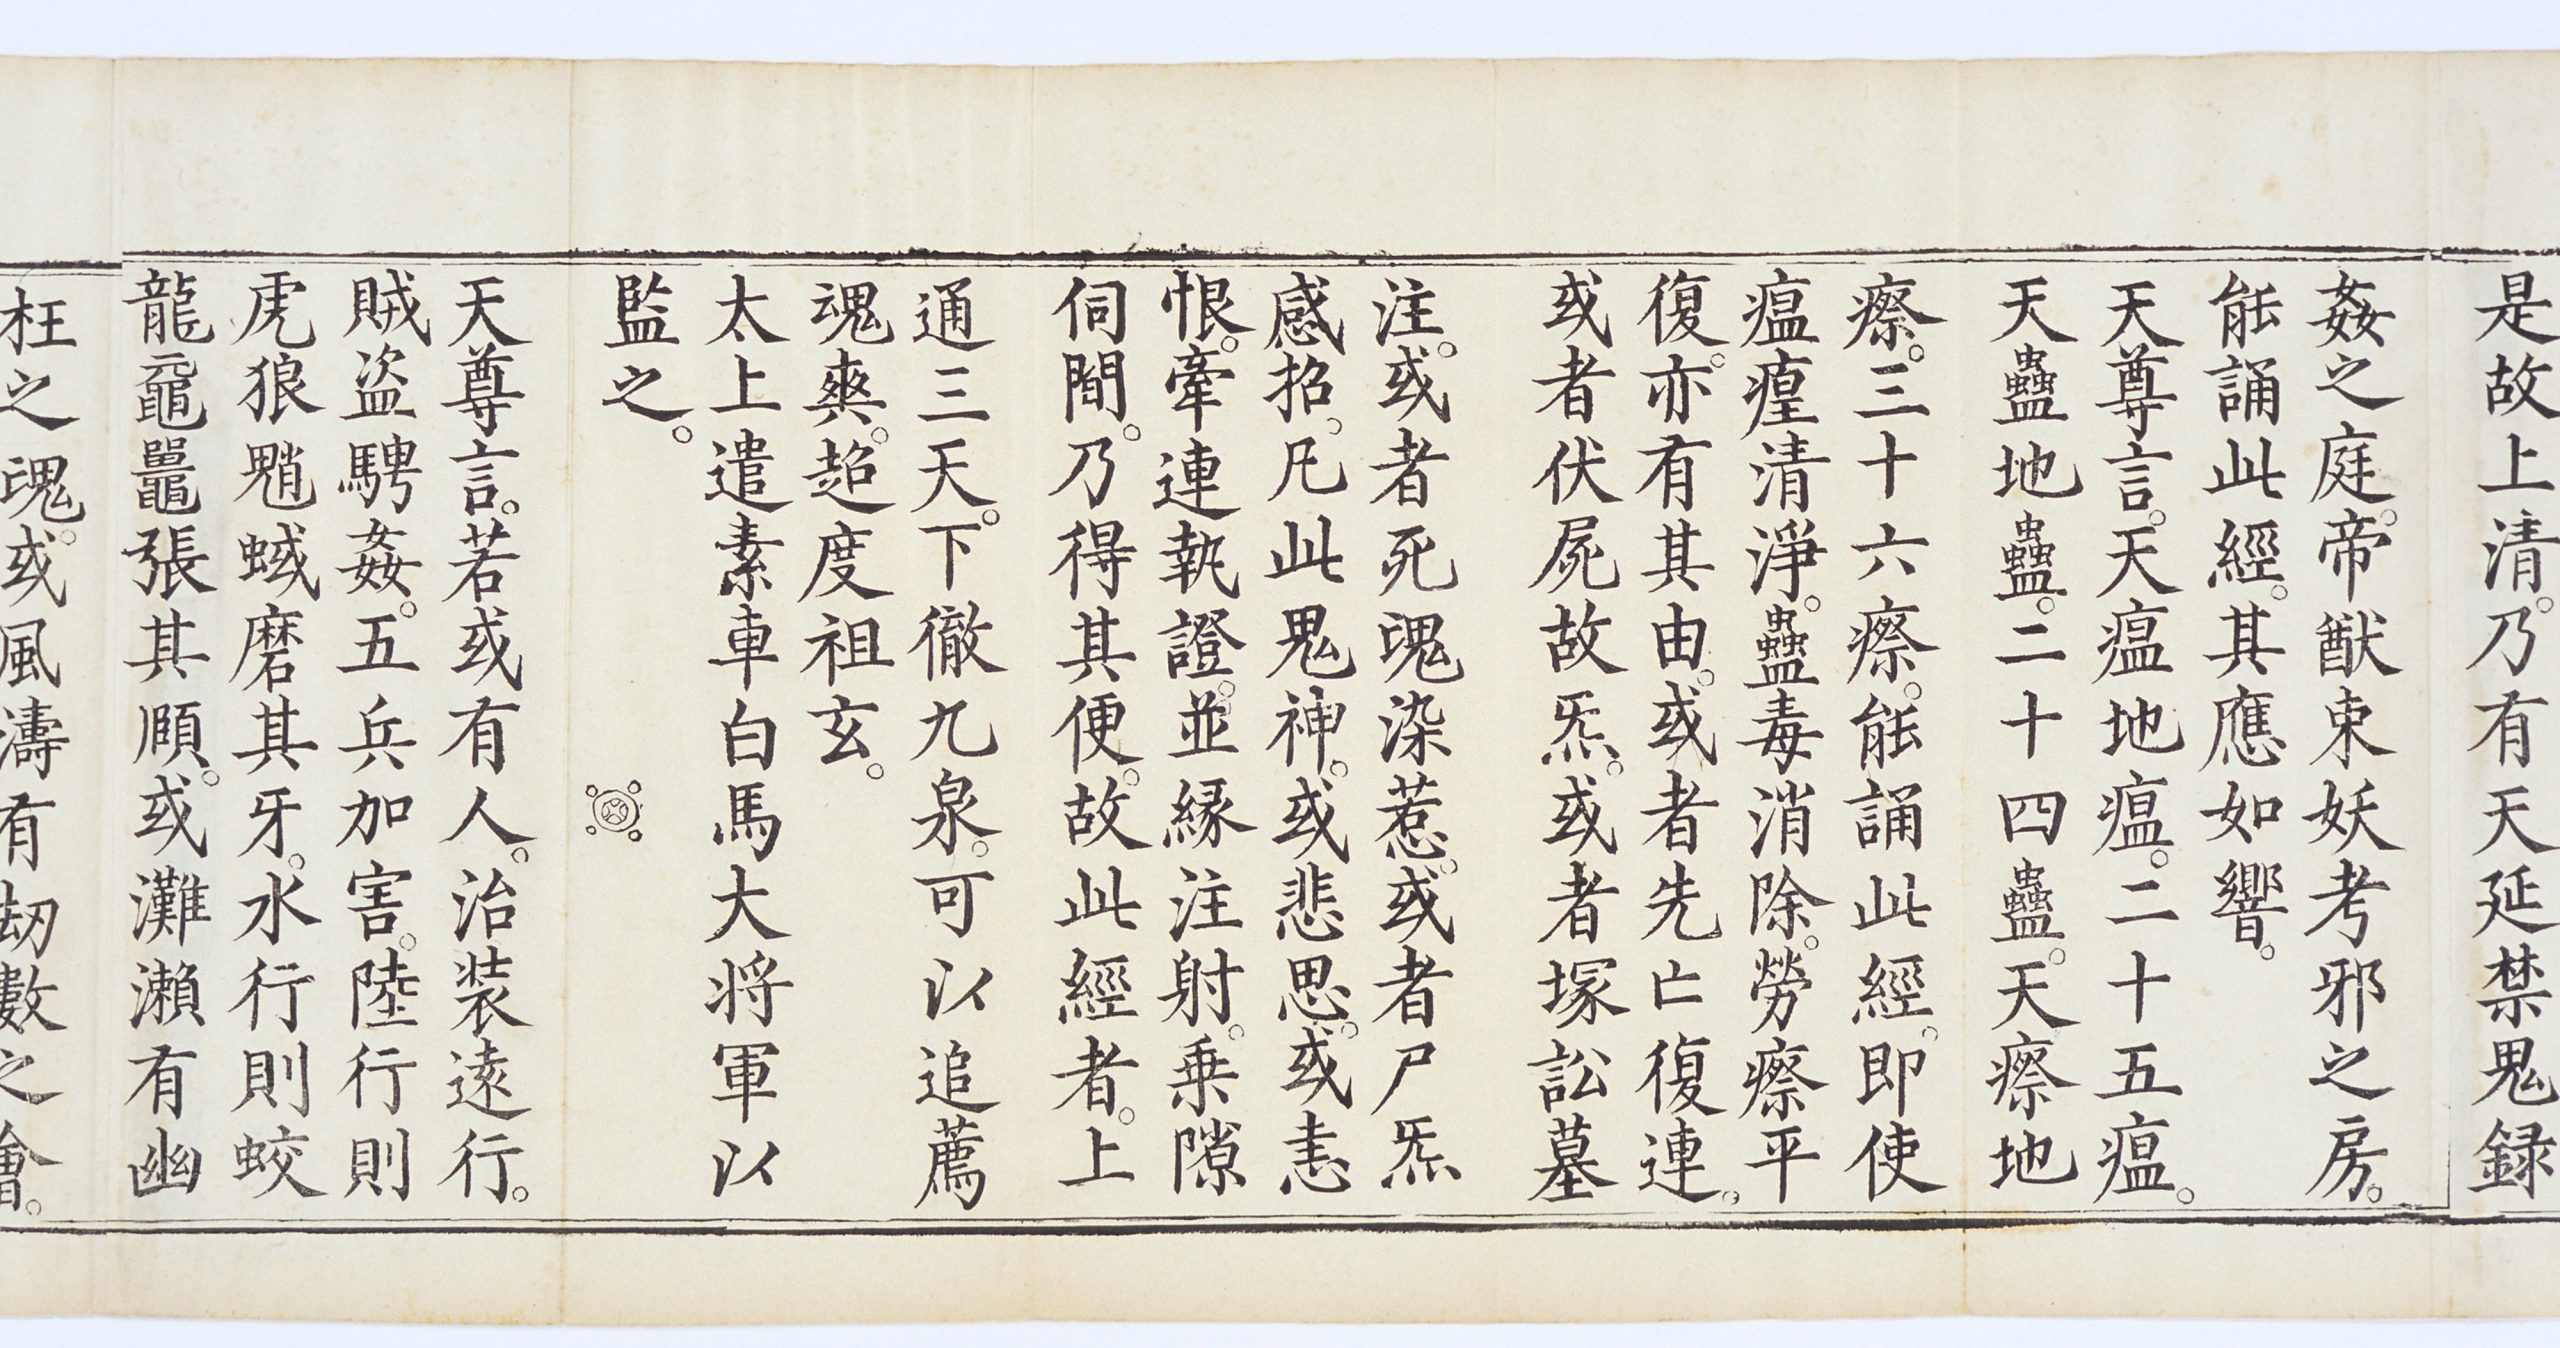 是故上清。乃有天延禁鬼録
姦之庭。帝猷束妖考邪之房。
能誦此經。其應如響。
天尊言。天瘟地瘟。二十五瘟。
天蠱地蠱。二十四蠱。天瘵地
瘵。三十六瘵。能誦此經。即使
瘟㾮清淨。蠱毒消除。勞瘵平
復。亦有其由。或者先亡復連。
或者伏屍故炁。或者塚訟墓
注。或者死魂染惹。或者尸炁
感招。凡此鬼神。或悲思。或恚
恨。牽連執證。並緣注射。乗隙
伺間。乃得其便。故此經者。上
通三天。下徹九泉。可以追薦
魂爽。超度祖玄。
太上遣素車白馬大將軍以
監之。
天尊言。若或有人。治装遠行。
賊盗騁姦。五兵加害。陸行則
虎狼魈蜮磨其牙。水行則蛟
龍黿鼉張其頤。或灘瀨有幽
枉之魂。或風濤有刼數之會。